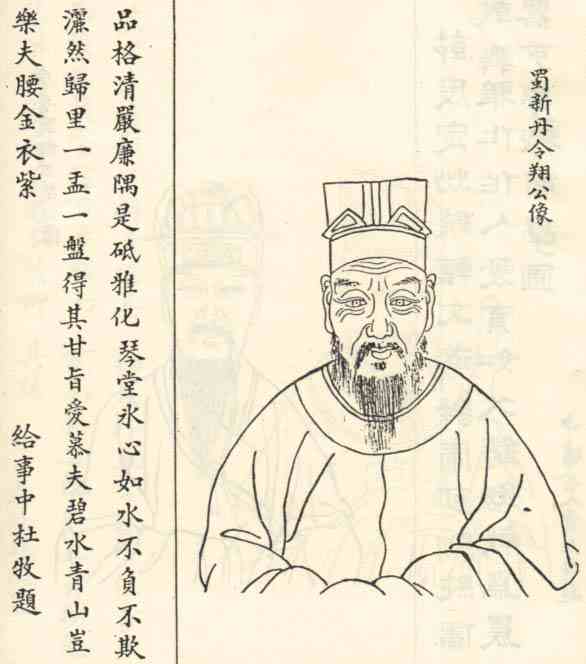 蜀新丹令翔公像
品格清嚴廉隅是砥雅化琴堂氷心如水不負不欺
灑然歸里一盂一盤得其甘旨愛慕夫碧水青山豈
樂夫腰金衣紫
給事中杜牧題